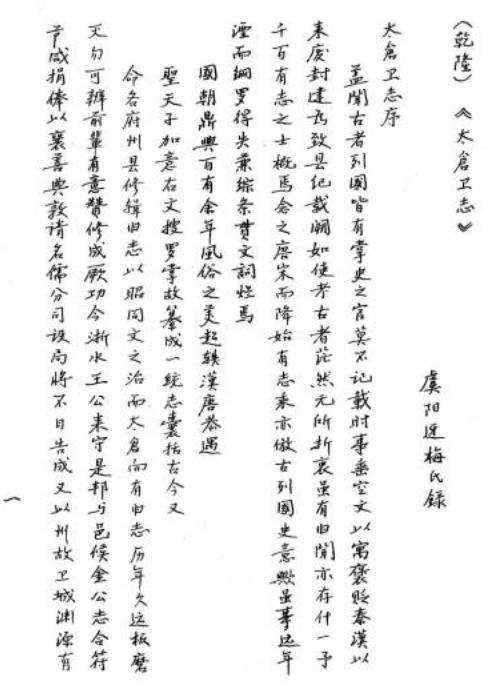 （乾隆）《太倉卫志》
虞阳迓梅氏録
太倉卫志序
盖聞古者列國皆有掌史之官莫不记載时事垂空文以寓褒贬秦漢以
来废封建为致县纪載阙如使考古者茫然无所折衷虽有旧聞亦存什一予
千百有志之士概焉念之唐宋而降始有志乘亦倣古列國史意欤虽事远年
湮而綱罗得失兼综条贯文詞烂焉
國朝鼎興百有余年風俗之美超轶漢唐恭遇
聖天子加意右文搜罗掌故纂成一统志囊括古今又
命各府州县修辑旧志以昭同文之治而太倉向有旧志历年久远板磨
灭勿可辨前輩有意贊修成厥功今浙水王公来守是邦与邑侯金公志合符
节咸捐俸以襄善典敦请名儒分司设局將不日告成又以州故卫城渊源有
一